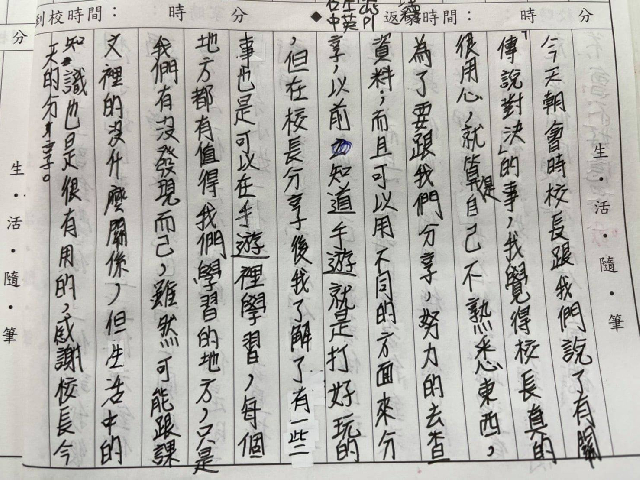 到校時間： 時 分 ◆ 返 時間： 時 分
生・活・隨・筆
今天朝會時校長跟我們說了有關「
傳說對決」的事，我覺得校長真的
很用心，就算是自己不熟悉東西，
為了要跟我們分享，努力的去查
資料，而且可以用不同的方面來分
享，以前 知道手遊就是打好玩的
，但在校長分享後我了解了有一些
事也是可以在手遊裡學習，每個
地方都有值得我們學習的地方，只是
我們有沒發現而己，雖然可能跟課
文裡的沒什麼關係，但生活中的
知識也是很有用的，感謝校長今
天的分享。
分
生・活・隨・筆